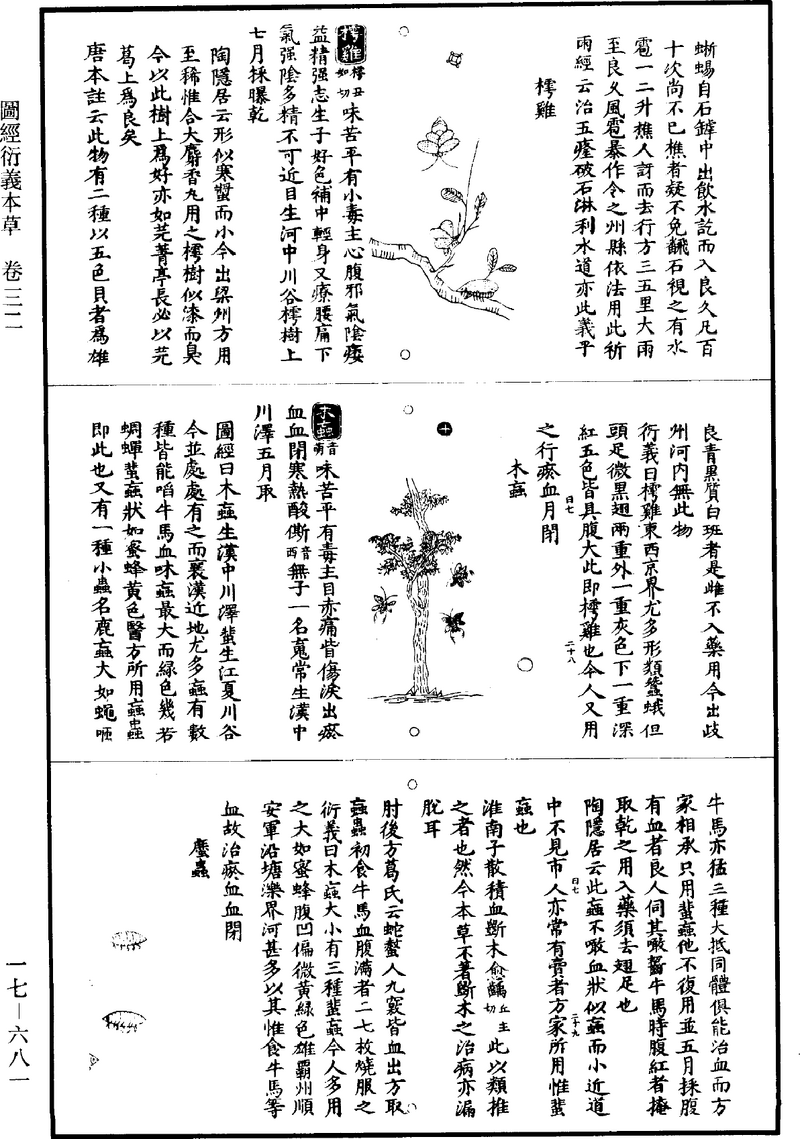 蜥蜴自石罅中出飲水訖而入良久凡百
十次尚不已樵者疑不免飜石視之有水
雹一二升樵人訝而去行方三五里大雨
至良久風雹暴作今之州縣依法用此祈
雨經云治五癃破石淋利水道亦此義乎
樗雞
樗雞樗丑如切味苦平有小毒主心腹邪氣陰痿
益精强志生子好色補中輕身又療腰痛下
氣强陰多精不可近目生河中川谷樗樹上
七月採曝乾
陶隱居云形似寒螿而小今出梁州方用
至稀惟合大麝香丸用之樗樹似漆而臭
今以此樹上爲好亦如芫菁亭長必以芫
葛上爲良矣
唐本註云此物有二種以五色具者爲雄
良青黒質白班者是雌不入藥用今出歧
州河内無此物
衍義曰樗雞東西京界尤多形類蠶蛾但
頭足微黒翅兩重外一重灰色下一重深
紅五色皆具腹大此即樗雞也今人又用
之行瘀血月閉
木䖟
木䖟音萌味苦平有毒主目赤痛眥傷淚出瘀
血血閉寒熱酸㒋音西無子一名䰟常生漢中
川澤五月取
圖經曰木䖟生漢中川澤蜚生江夏川谷
今並處處有之而襄漢近地尤多䖟有數
種皆能啗牛馬血味䖟最大而緑色幾若
蜩蟬蜚䖟狀如蜜蜂黄色醫方所用䖟蟲
即此也又有一種小蟲名鹿䖟大如蠅咂
牛馬亦猛三種大抵同體俱能治血而方
家相承只用蜚䖟他不復用並五月採腹
有血者良人伺其噉齧牛馬時腹紅者掩
取乾之用入藥須去翅足也
陶隱居云此䖟不噉血狀似䖟而小近道
中不見市人亦常有賣者方家所用惟蜚
䖟也
淮南子散積血斷木愈齲丘主切此以類推
之者也然今本草不著斷木之治病亦漏
脫耳
肘後方葛氏云蛇螫人九竅皆血出方取
䖟蟲初食牛馬血腹滿者二七枚燒服之
衍義曰木䖟大小有三種蜚䖟今人多用
之大如蜜蜂腹凹偏微黄緑色雄霸州順
安軍沿塘濼界河甚多以其惟食牛馬等
血故治瘀血血閉
䗪蟲
圖經衍義本草 卷三二
一七－六八一